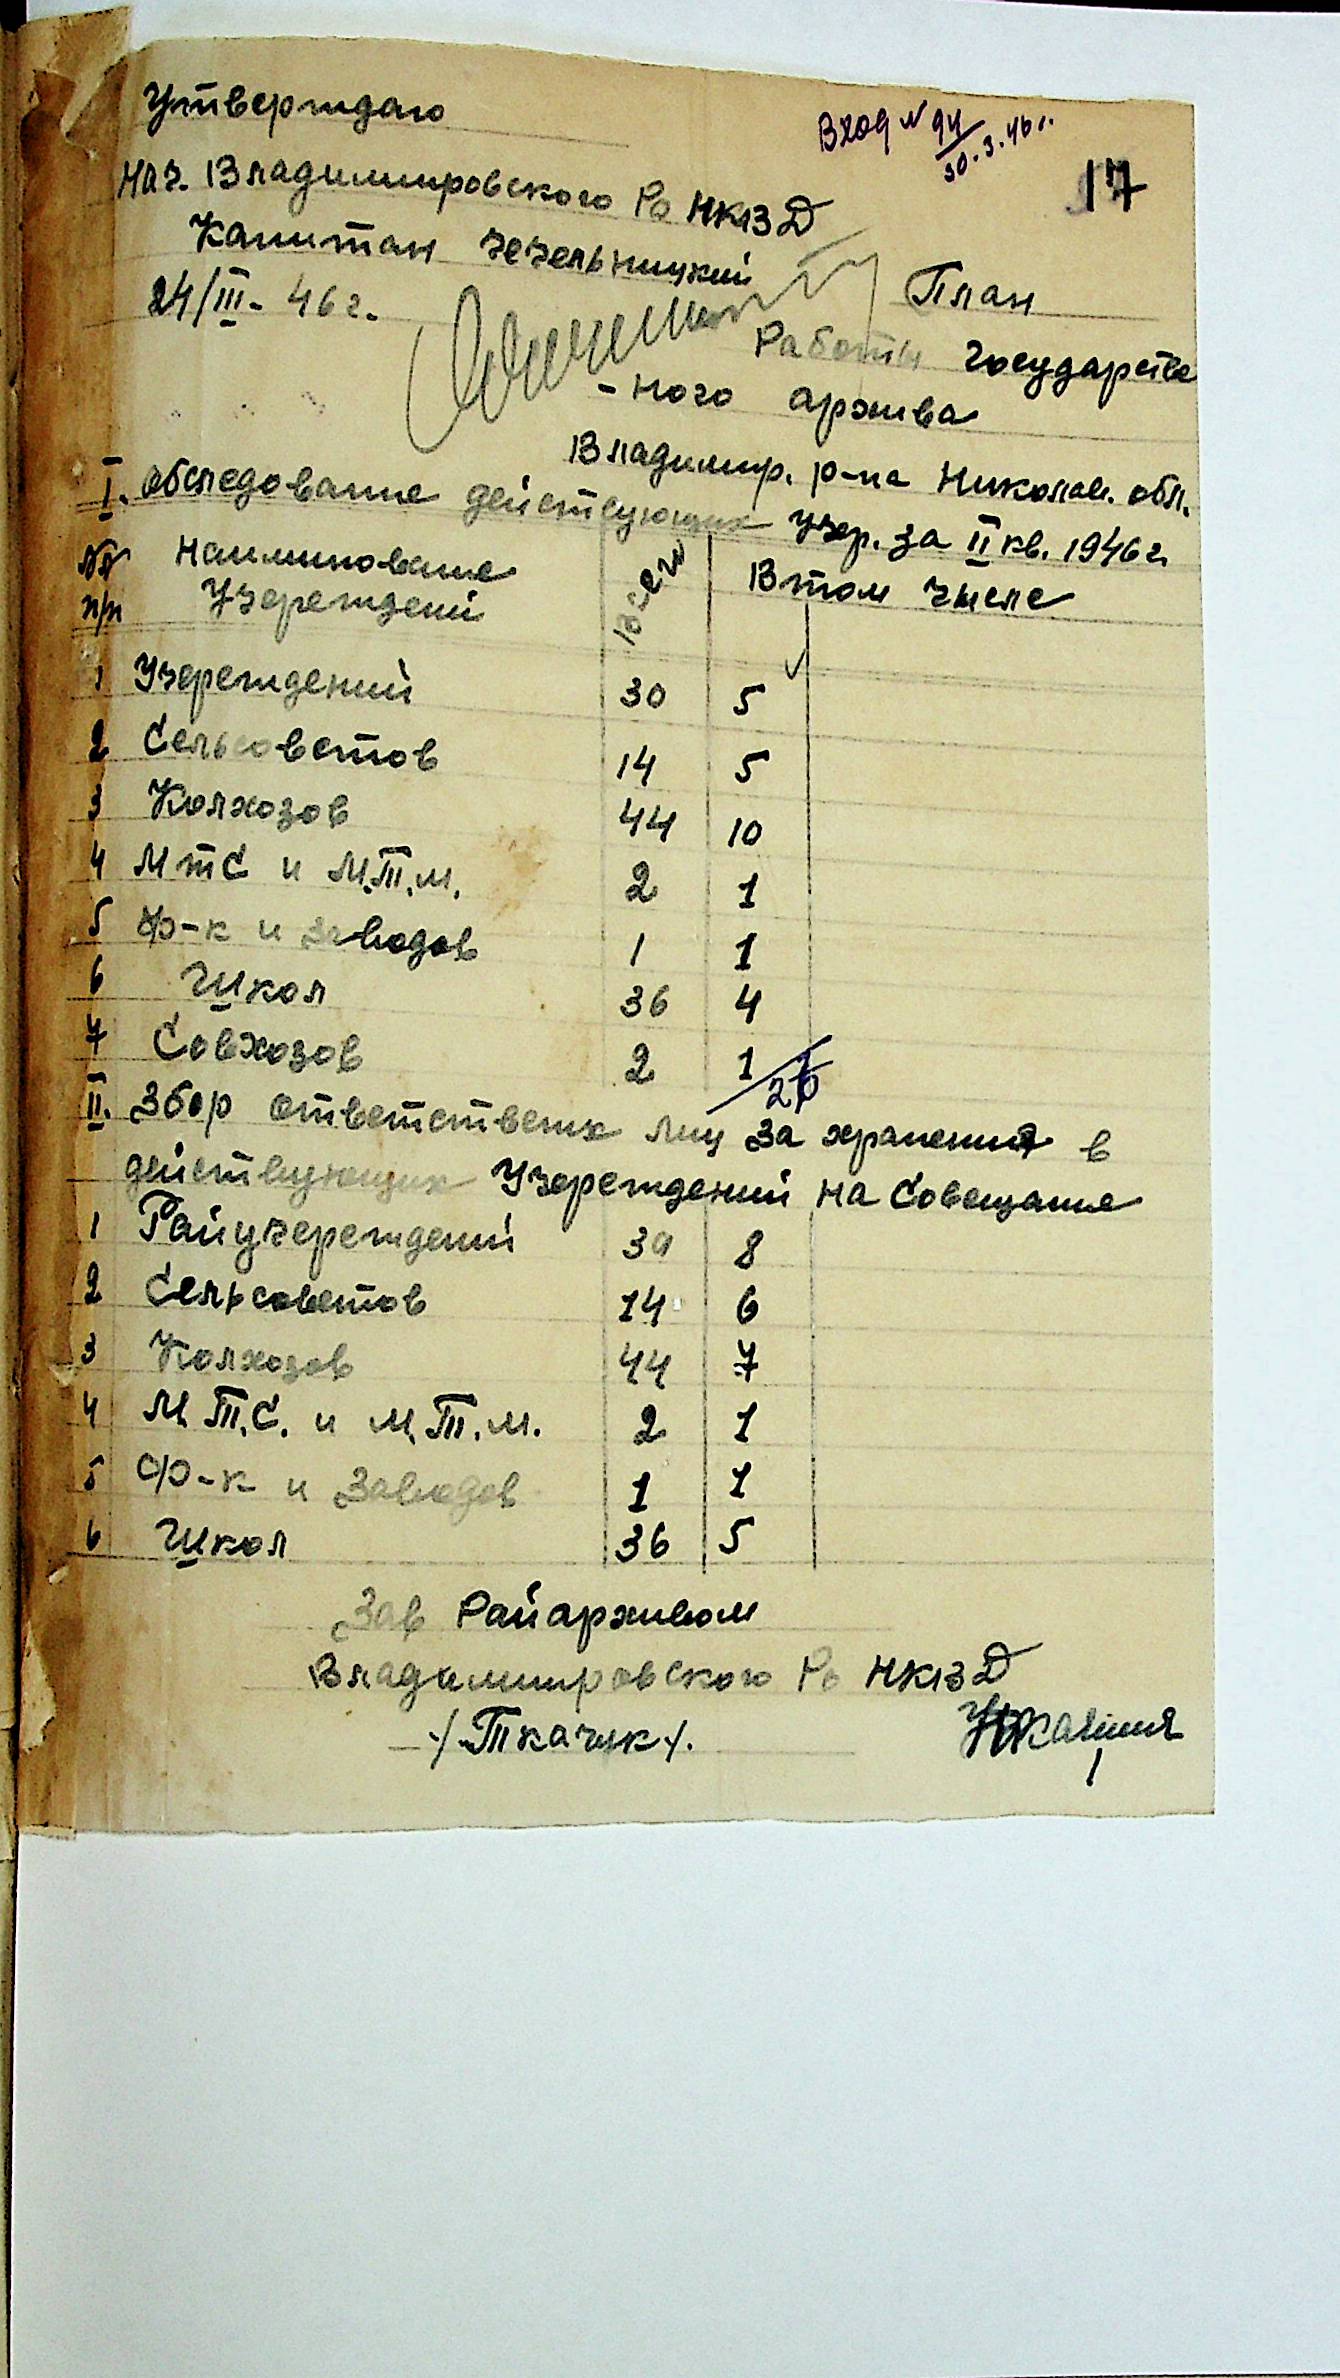 Утверждаю
Вход № 94
30.3.46 г.
17
Нач. Владимировского Ро НКВД
Капитан Чечельницкий
24/III- 46 г.
План
Работы Государстве
-ного архива
Владимир. р-на Николаев. обл.
I. обследование действующих учер. за II кв. 1946 г.
№№ п/п Наиминование Учереждений Всего В том числе
1 Учереждений 30 5
2 Сельсоветов 14 5
3 Колхозов 44 10
4 МТС и М.Т.М. 2 1
5 Ф-к и заводов 1 1
6 Школ 36 4
7 Совхозов 2 1
II. Збор ответственх лиц за хранения в
действующих Учереждений на Совещание
1 Райучереждений 30 8
2 Сельсоветов 14 6
3 Колхозов 44 7
4 М.Т.С. и М.Т.М. 2 1
5 Ф-к и Заводов 1 1
6 Школ 36 5
Зав Райархивом
Владимировского Ро НКВД
-/Ткачук/.